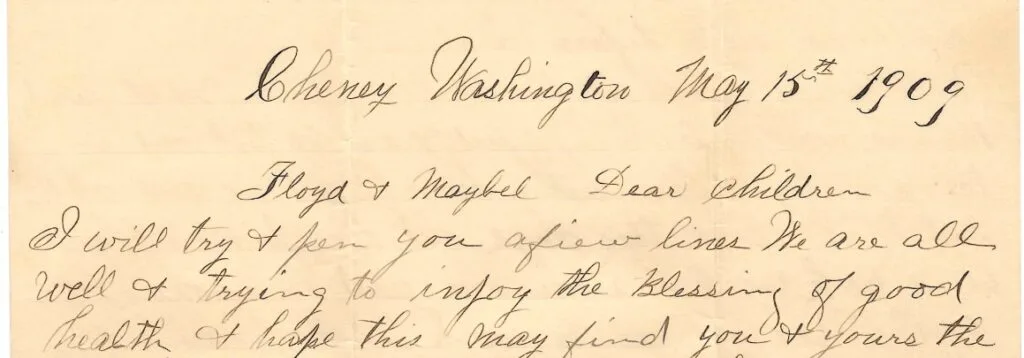 Cheney Washington May 15th 1909
Floyd & Maybel Dear Children
I will try & pen you afiew lines We are all
well & trying to injoy the Blessing of good
health & hope this may find you & yours the